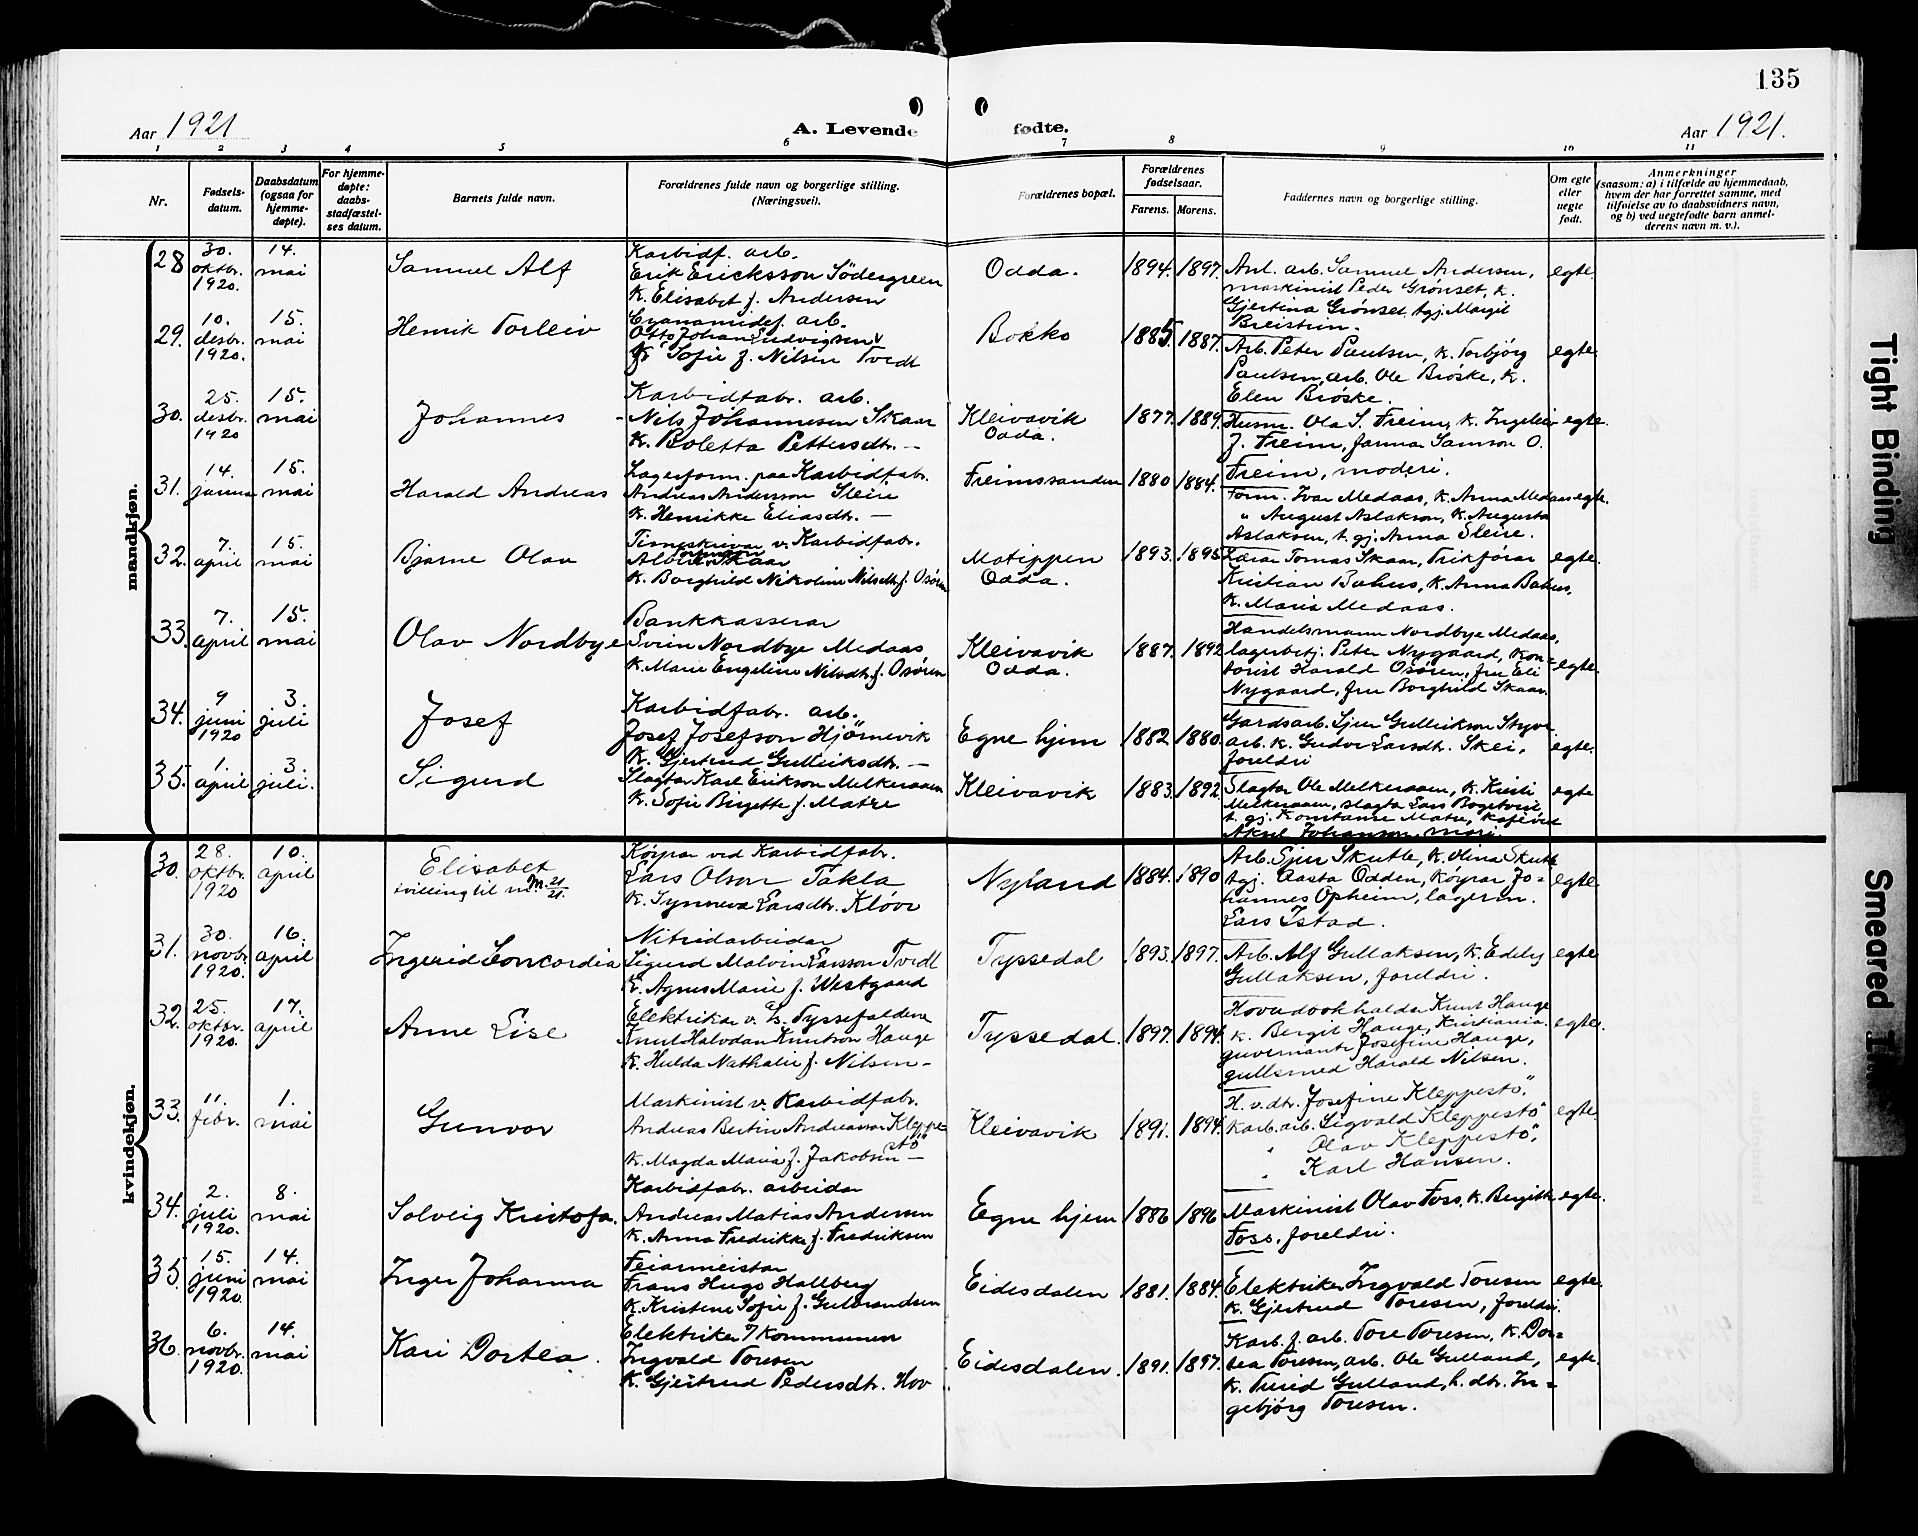 135
Aar 1921
A. Levende fødte.
Aar 1921.
1 2 3 4 5 6 7 8 9 10 11
Nr.
Fødsels-
datum.
Daabsdatum
(ogsaa for
hjemme-
døpte).
For hjemme-
døpte:
daabs-
stadfæstel-
ses datum.
Barnets fulde navn.
Forældrenes fulde navn og borgerlige stilling.
(Næringsvei).
Forældrenes bopæl.
Forældrenes
fødselsaar.
Farens. Morens.
Faddernes navn og borgerlige stilling.
Om egte
eller
uegte
født.
Anmerkninger
(saasom: a) i tilfælde av hjemmedaab,
hvem der har forrettet samme, med
tilføielse av to daabsvidners navn,
og b) ved uegtefødte barn anmel-
derens navn m. v.).
mandkjøn.
28 30. oktbr. 1920. 14. mai
Samuel Alf
Karbidf. arb.
Erik Ericksson Södergreen
K. Elisabet f. Andersen
Odda. 1894. 1897.
Anl. arb. Samuel Andersen,
maskinist Peder Grønset, k.
Gjertina Grønset, tgj. Margit
Breistein.
egte
29. 10. desbr. 1920. 15. mai
Henrik Torleiv
Cyanamidf. arb.
Otto Johan Ludvigsen
K. Sofie f. Nilsen Tvedt
Bokko 1885. 1887.
Arb. Peter Paulsen, k. Torbjørg
Paulsen, arb. Ole Brøske, k.
Elen Brøske.
egte
30. 25. desbr. 1920 15. mai
Johannes
Karbidfabr. arb.
Nils Johannesen Skaar
K. Boletta Pettersdtr. —
Kleivavik
Odda.
1877. 1889.
Husm. Ola S. Freim, k. Ingeleiv
J. Freim, Samson O.
Freim, moderi.
egte.
31. 14. januar 15. mai
Harald Andreas
Lagerform. paa Karbidfabr.
Andreas Andersson Sleire
K. Henrikke Eliasdtr. —
Freimssanden 1880 1884.
Form. Ivar Medaas, k. Anna Medaas
" August Aslakson, k. Augusta
Aslaksen, t. gj. Anna Sleire.
egte.
32. 7. april 15. mai
Bjarne Olav
Timeskrivar v. Karbidfabr.
Albert Skaar
K. Borghild Nikoline Nilsdtr. f. Osøren
Motippen
Odda.
1893. 1895
Lærar Tomas Skaar, Trikførar
Kristian Bahus, K. Anna Bahus,
K. Maria Medaas.
egte.
33. 7. april 15. mai
Olav Nordbye
Bankkasserar
Svein Nordbye Medaas,
K. Marie Engeline Nilsdtr. f. Osøren
Kleivavik
Odda.
1887. 1892
Handelsmann Nordbye Medaas,
lagerbetj. Peter Nygaard, kon=
torist Harald Osøren, fru Eli
Nygaard, fru Borghild Skaar.
egte.
34. 9 juni 1920 3. juli
Josef
Karbidfabr. arb.
Josef Josefson Hjörnevik
K. Gjertrud Gulleiksdtr. —
Egne hjem 1882 1880.
Gardsarb. Sjur Gulleikson Skyve
arb. k. Gudve Larsdtr. Skei,
foreldri
egte.
35. 1. april 3. juli.
Sigurd
Slagtar Karl Erikson Melkeraaen
K. Sofie Birgitte f. Matre
Kleivavik 1883. 1892
Slagtar Ole Melkeraaen, k. Kirsti
Melkeraaen, slagtar Lars
t. gj. Konstanse Matre,
Aksel Johanson, mori.
egte
kvindekjøn.
30. 28. oktbr. 1920 10. april
Elisabet
tvilling til nr. M. 21/21.
Køyrar ved Karbidfabr.
Lars Olson Takla
K. Synneva Larsdtr. Kløve
Nyland 1884. 1890
Arb. Sjur Skutle, K. Olina Skutle
tgj. Aasta Odden, køyrar Jo=
hannes Opheim, lagerm.
Lars Istad.
egte
31. 30. novbr. 1920. 16. april
Ingerid Concordia
Nitridarbeidar
Sigurd Malvin Larsson Tvedt
K. Agnes Marie f. Westgaard
Tyssedal 1893. 1897.
Arb. Alf Gullaksen, K. Edely
Gullaksen, foreldri.
egte
32. 25. oktbr. 1920. 17. april
Anne Lise
Elektriker v. a/s. Tyssefaldene
Knut Halvdan Knutson Hauge
K. Hulda Nathalie f. Nilsen —
Tyssedal. 1897. 1894.
Hovudbokhaldar Knut Hauge
K. Bergit Hauge, Kristiania.
guvernante Josefine Hauge,
gullsmed Harald Nilsen.
egte.
33. 11. febr. 1. mai
Gunvor
Maskinist v. Karbidfabr.
Andreas Bertin Andreassen Kleppe
stö"
K. Magda Maria f. Jakobsen —
Kleivavik 1891. 1894.
H. v. dtr. Josefine Kleppestö",
Karb. arb. Sigvald Kleppestö"
" Olav Kleppestö",
" Karl Hansen.
egte
34. 2. juli 1920. 8. mai
Solveig Kristofa.
Karbidfabr. arbeidar
Andreas Matias Andersen
K. Anna Fredrikke f. Fredriksen
Egne hjem 1886 1896
Maskinist Olav Foss, k. Birgitte
Foss, foreldri.
egte.
35. 15. juni 1920. 14. mai
Inger Johanna
Feiarmeistar
Frans Hugo Hallberg
K. Kristene Sofie f. Gulbrandsen
Eidesdalen 1881. 1884.
Elektriker Ingvald Toresen
K. Gjertrud Toresen, foreldri.
egte.
36. 6. novbr. 1920. 14. mai
Kari Dortea.
Elektriker i kommunen
Ingvald Toresen
K. Gjertrud Pedersdtr. Hov
Eidesdalen. 1891. 1897.
Karb. f. arb. Tore Toresen, K. Dor=
tea Toresen, arb. Ole Gulland,
K. Turid Gulland, h. dtr. In=
gebjörg Toresen.
egte.
Tight Binding
Smeared